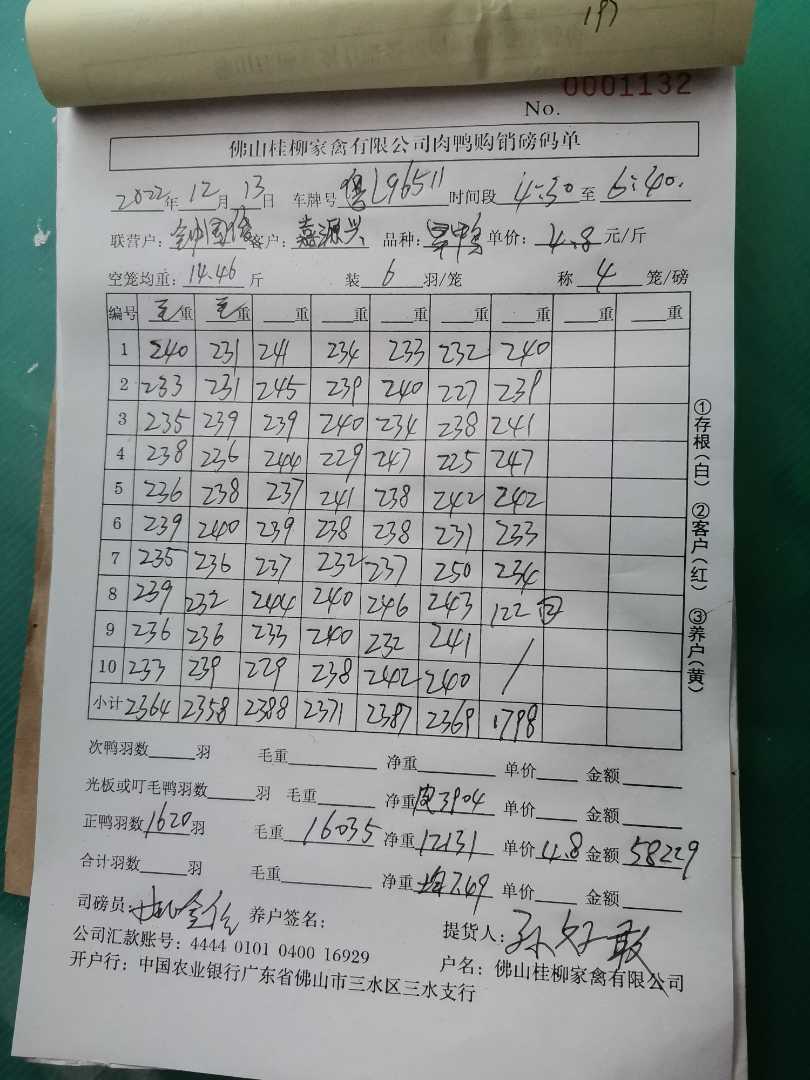 197
No. 0001132
佛山桂柳家禽有限公司肉鸭购销磅码单
2022年12月13日 车牌号 粤L96511 时间段 4:30 至 6:40.
联营户: 客户: 嘉源兴 品种: 单价: 4.8 元/斤
空笼均重: 14.46 斤 装 6 羽/笼 称 4 笼/磅
编号 毛重 毛重 重 重 重 重 重 重 重
1 240 231 241 234 233 232 240
2 233 231 245 239 240 227 239
3 235 239 239 240 234 238 241
4 238 236 244 229 247 225 247
5 236 238 237 241 238 242 242
6 239 240 239 238 238 231 233
7 235 236 237 232 237 250 234
8 239 232 244 240 246 243 122 ②
9 236 236 233 240 232 241 /
10 233 239 229 238 242 240 /
小计 2364 2358 2388 2371 2387 2369 1798
次鸭羽数 羽 毛重 净重 单价 金额
光板或叮毛鸭羽数 羽 毛重 净重 皮3904 单价 金额
正鸭羽数 1620 羽 毛重 16035 净重 12131 单价 4.8 金额 58229
合计羽数 羽 毛重 净重 均7.49 单价 金额
司磅员: 养户签名: 提货人: 孙好敢
公司汇款账号: 4444 0101 0400 16929 户名: 佛山桂柳家禽有限公司
开户行: 中国农业银行广东省佛山市三水区三水支行
①存根(白) ②客户(红) ③养户(黄)